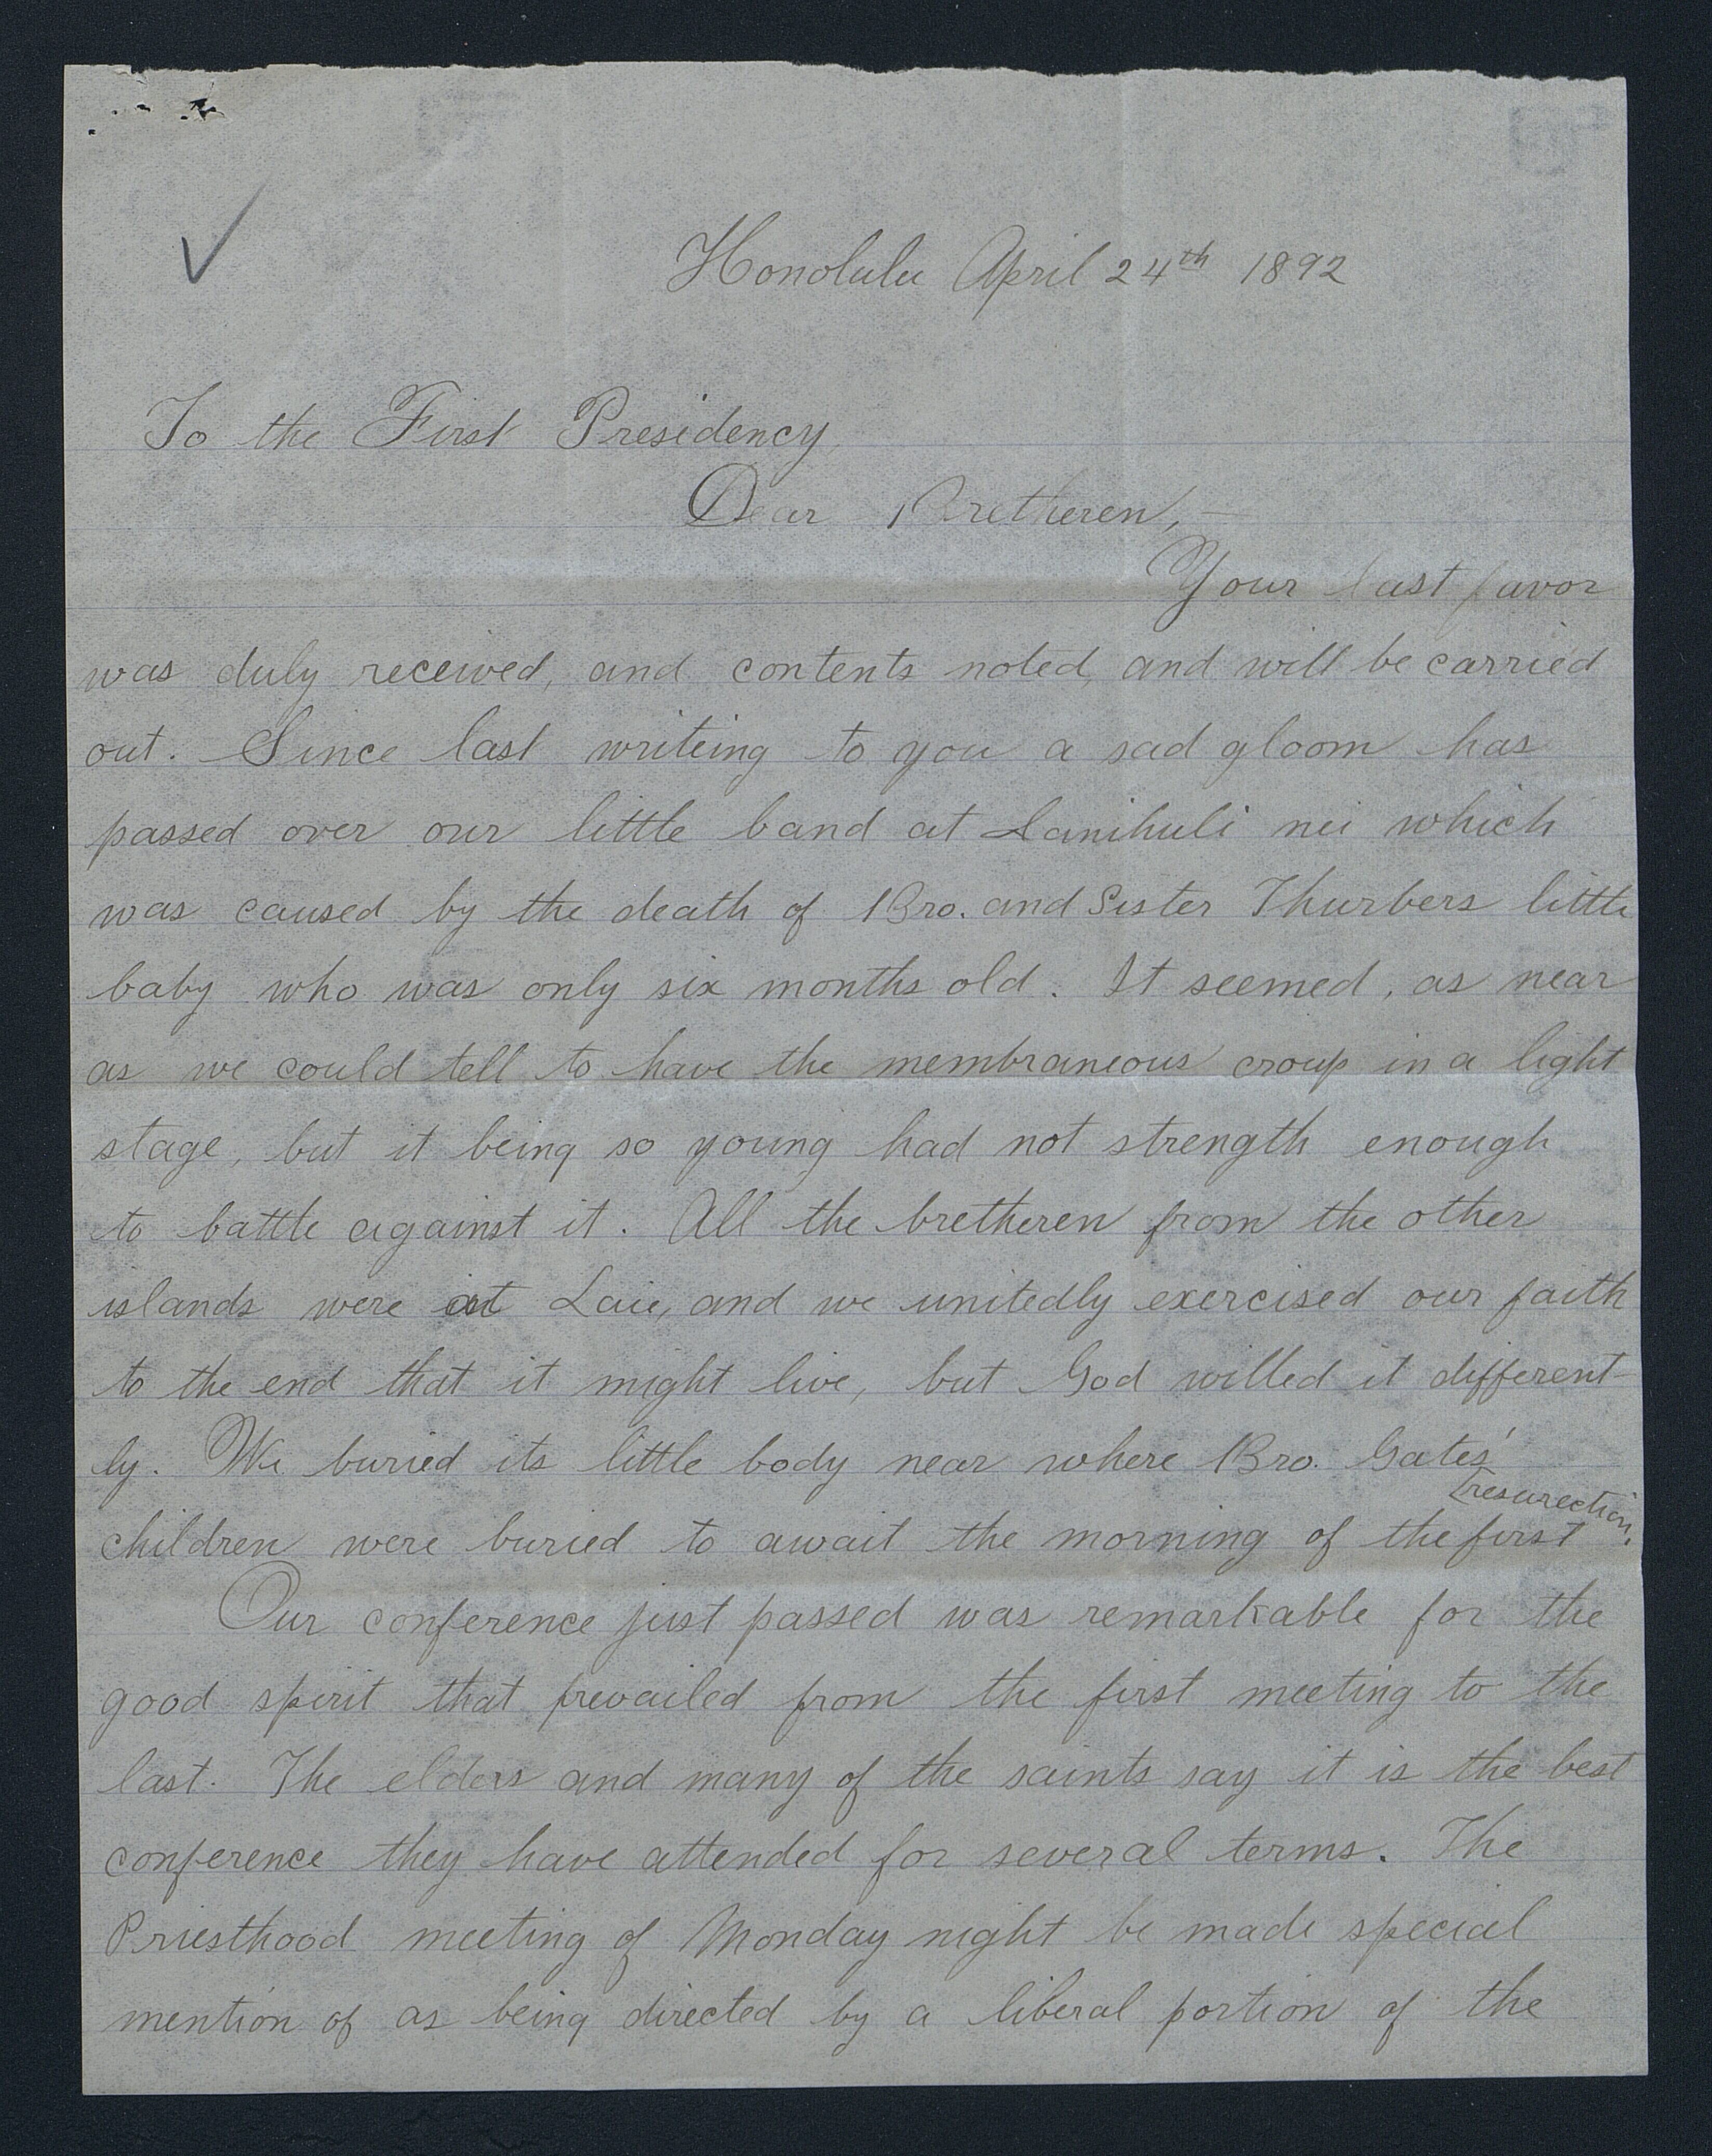 Honolulu April 24th 1892
To the First Presidency
Dear Bretheren,—
Your last favor
was duly received, and contents noted, and will be carried
out. Since last writeing to you a sad gloom has
passed over our little band at Lanihuli nei which
was caused by the death of Bro. and Sister Thurbers little
baby who was only six months old. It seemed, as near
as we could tell to have the membraneous croup in a light
stage, but it being so young had not strength enough
to battle against it. All the bretheren from the other
islands were at Laie, and we unitedly exercised our faith
to the end that it might live, but God willed it different-
ly. We buried its little body near where Bro. Gates'
children were buried to await the morning of the first
resurection.
Our conference just passed was remarkable for the
good spirit that prevailed from the first meeting to the
last. The elders and many of the saints say it is the best
conference they have attended for several terms. The
Priesthood meeting of Monday night be made special
mention of as being directed by a liberal portion of the